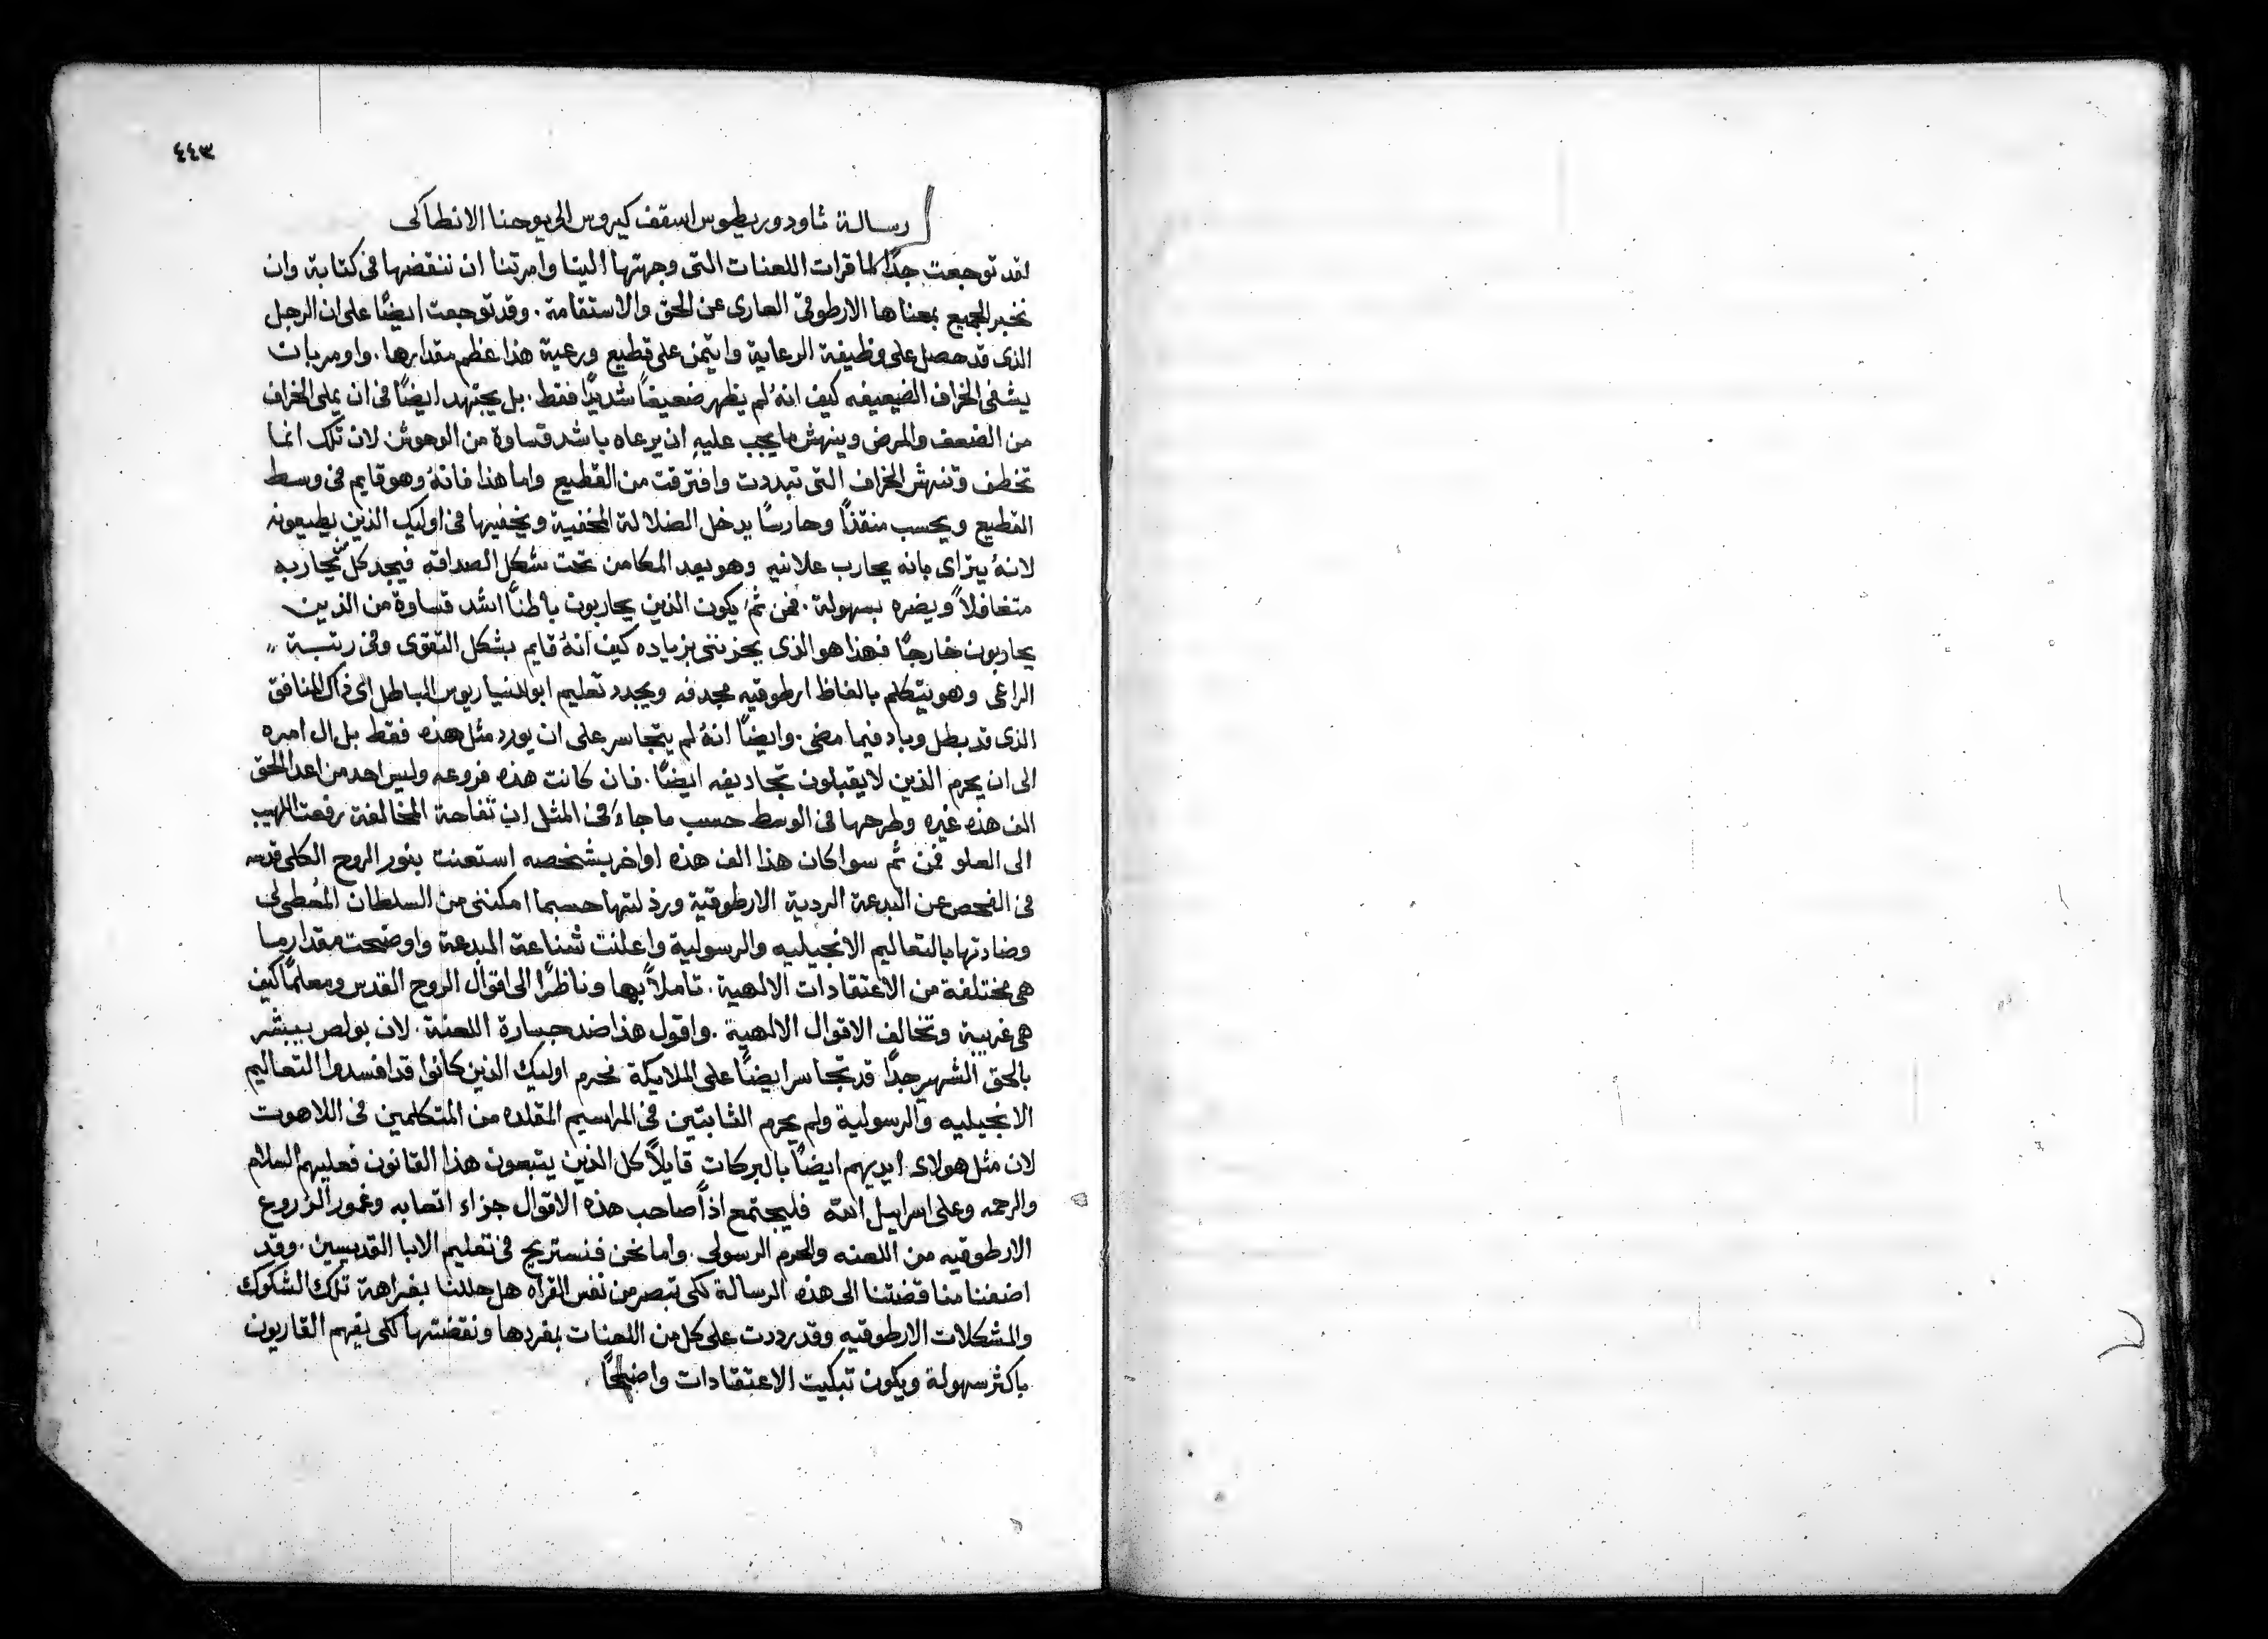 ٤٤٣
رسالة ثاودوريطوس اسقف كيروس الى يوحنا الانطاكى
لقد توجعت جدًا لما قرات اللعنات التى وجهتها الينا وامرتنا ان ننقضها فى كتابة وان
نخبر الجميع بمعناها الارطوقى العارى عن الحق والاستقامة . وقد توجعت ايضًا على ان الرجل
الذى قد حصل على وظيفة الرعاية وايتمن على قطيع ورعية هذا عظم مقدارها . واومر بان
يشفى الخراف الضعيفه كيف انهُ لم يظهر ضعيفًا شديدًا فقط . بل يجتهد ايضًا فى ان يملى الخراف
من الضعف والمرض وينهش ما يجب عليهِ ان يرعاه باشد قساوة من الوحوش لان تلك انما
تخطف وتنهش الخراف التى تبددت وافترقت من القطيع واما هذا فانهُ وهو قايم فى وسط
القطيع ويحسب منقذًا وحارسًا يدخل الضلالة المخفية ويخفيها فى اوليك الذين يطيعونه
لانهُ يتراى بانه يحارب علانيه وهو يعد المكامن تحت شكل الصداقه فيجد كل من يحاربه
متغافلاً ويضره بسهولة . فمن ثم يكون الذين يحاربون باطنًا اشد قساوة من الذين
يحاربون خارجًا فهذا هو الذى يحزننى بزياده كيف انهُ قايم بشكل التقوى وفى رتبة „
الراعى وهو يتكلم بالفاظ ارطوقيه مجدفه ويجدد تعليم ابوالنياريوس الباطل اى ذاك المنافق
الذى قد بطل وباد فيما مضى . وايضًا انهُ لم يتجاسر على ان يورد مثل هذه فقط بل ال امره
الى ان يحرم الذين لا يقبلون تجاديفه ايضًا . فان كانت هذه فروعه وليس احد من اعدا الحق
الف هذه غيره وطرحها فى الوسط حسب ما جاء فى المثل ان تفاحة المخالفة رفعت اللهيب
الى العلو فمن ثم سوا كان هذا الف هذه او اخر بشخصه استعنت بنور الروح الكلى قدسه
فى الفحص عن البدعة الردية الارطوقية ورذلتها حسبما امكننى من السلطان المُعطى لى
وضادتها بالتعاليم الانجيليه والرسولية واعلنت شناعة البدعة واوضحت مقدار ما
هى مختلفة من الاعتقادات الالهية . تاملاً بها وناظرًا الى اقوال الروح القدس ومعلمًا كيف
هى غريبة وتخالف الاقوال الالهية . واقول هذا ضد جسارة اللعنة . لان بولص يبشر
بالحق الشهير جدًا قد تجاسر ايضًا على الملايكة فحرم اوليك الذين كانوا قد افسدوا التعاليم
الانجيليه والرسولية ولم يحرم الثابتين فى المراسيم المقلده من المتكلمين فى اللاهوت
لان مثل هولاى ايديهم ايضًا بالبركات قايلاً كل الذين يتبعون هذا القانون فعليهم السلام
والرحمه وعلى اسراييل الله فليجتمع اذًا صاحب هذه الاقوال جزاء اتعابه وغمور الزروع
الارطوقيه من اللعنه والحرم الرسولى . واما نحن فنستريح فى تعليم الابا القديسين . وقد
اضفنا مناقضتنا الى هذه الرسالة لكى تبصر من نفس القراه هل حللنا بفراهة تلك الشكوك
والمشكلات الارطوقيه وقد رددت على كل من اللعنات بمفردها ونقضتها لكى يفهم القاريون
باكثر سهولة ويكون تبكيت الاعتقادات واضحًا .